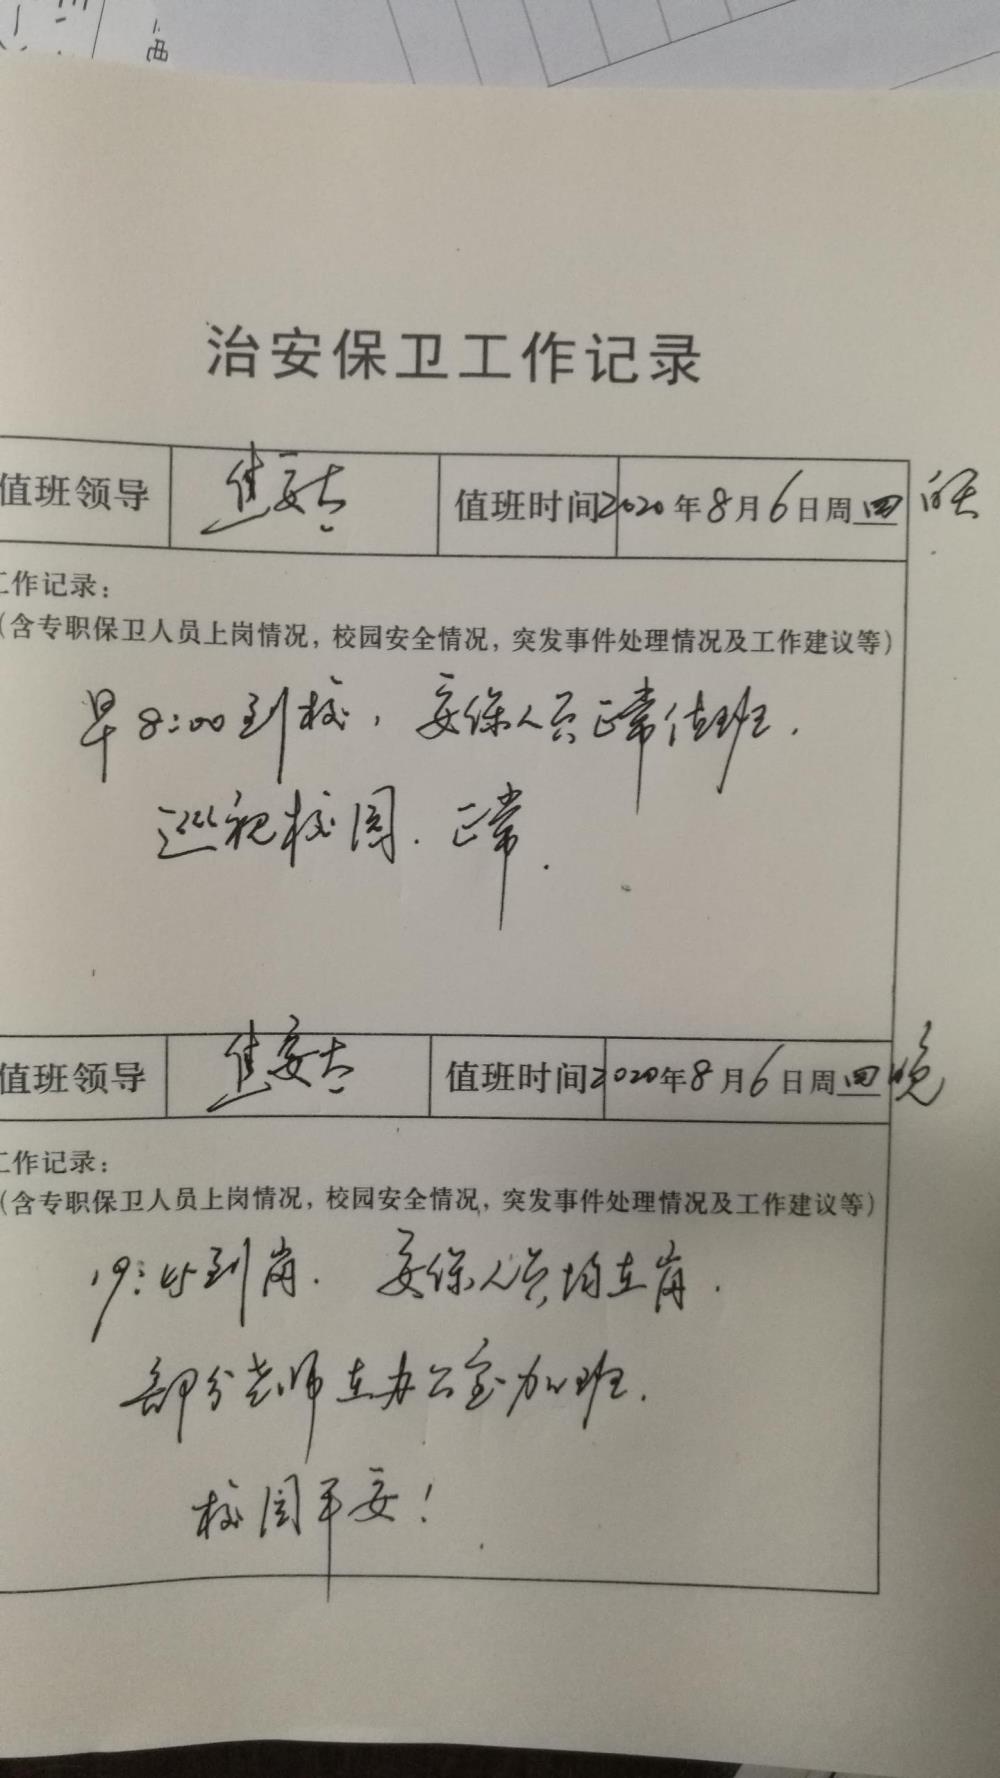 治安保卫工作记录
值班领导 焦安 值班时间 2020年8月6日周四 白天
工作记录：
（含专职保卫人员上岗情况，校园安全情况，突发事件处理情况及工作建议等）
早8:00到校，安保人员正常值班.
巡视校园.正常.
值班领导 焦安 值班时间 2020年8月6日周四晚
工作记录：
（含专职保卫人员上岗情况，校园安全情况，突发事件处理情况及工作建议等）
19:45到岗.安保人员均在岗.
部分老师在办公室加班.
校园平安！